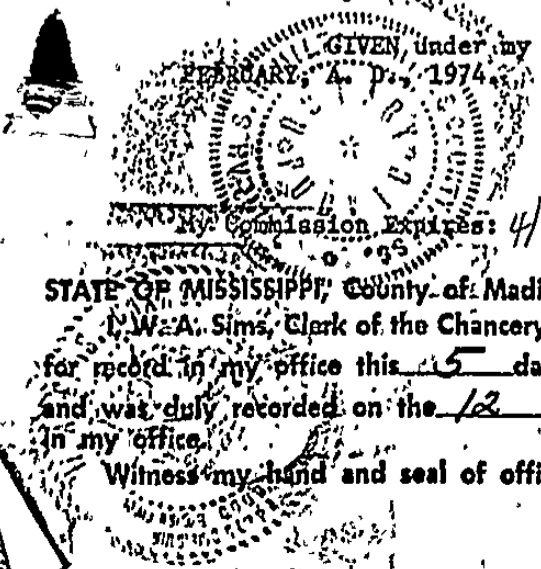 GIVEN under my
FEBRUARY, A. D., 1974.
My Commission Expires: 4/
STATE OF MISSISSIPPI, County of Madi
I, W. A. Sims, Clerk of the Chancery
for record in my office this 5 da
and was duly recorded on the 12
in my office.
Witness my hand and seal of offi